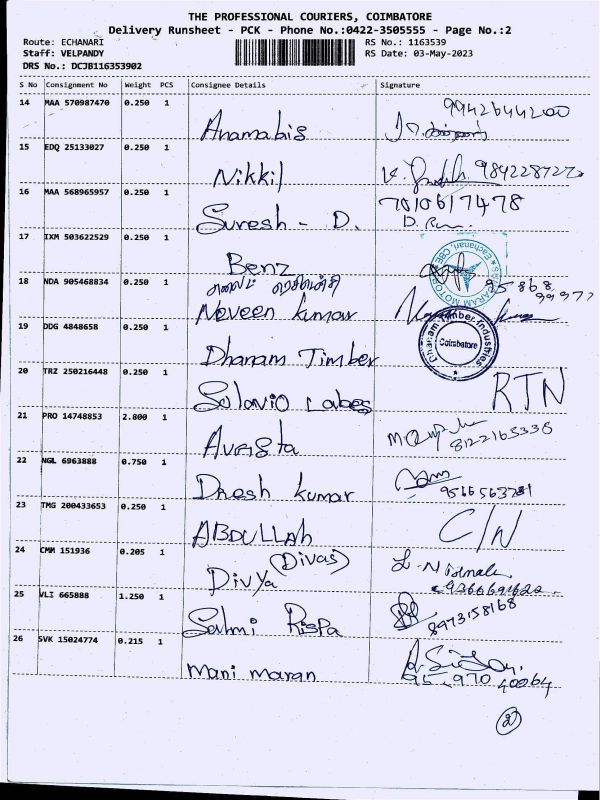 THE PROFESSIONAL COURIERS, COIMBATORE
Delivery Runsheet - PCK - Phone No.:0422-3505555 - Page No.:2
Route: ECHANARI RS No.: 1163539
Staff: VELPANDY RS Date: 03-May-2023
DRS No.: DCJB116353902
S No Consignment No Weight PCS Consignee Details Signature
14 MAA 570987470 0.250 1
Anamabis 9942644200
15 EDQ 25133027 0.250 1
Nikkil
16 MAA 568965957 0.250 1 7010617478
Suresh - D.
17 IXM 503622529 0.250 1
Benz
18 NDA 905468834 0.250 1
Naveen Kumar
19 DDG 4848658 0.250 1
Dhanam Timber Coimbatore
20 TRZ 250216448 0.250 1
Solonio Labes RTN
21 PRO 14748853 2.800 1
Avesta 8122165338
22 NGL 6963888 0.750 1
Dhesh Kumar 9566563781
23 TMG 200433653 0.250 1
ABDULLAH C/N
24 CMM 151936 0.205 1
Divya (Divas)
25 VLI 665888 1.250 1
Salmi Rispa 8973158168
26 SVK 15024774 0.215 1
Mani maran 95 970 40064
2